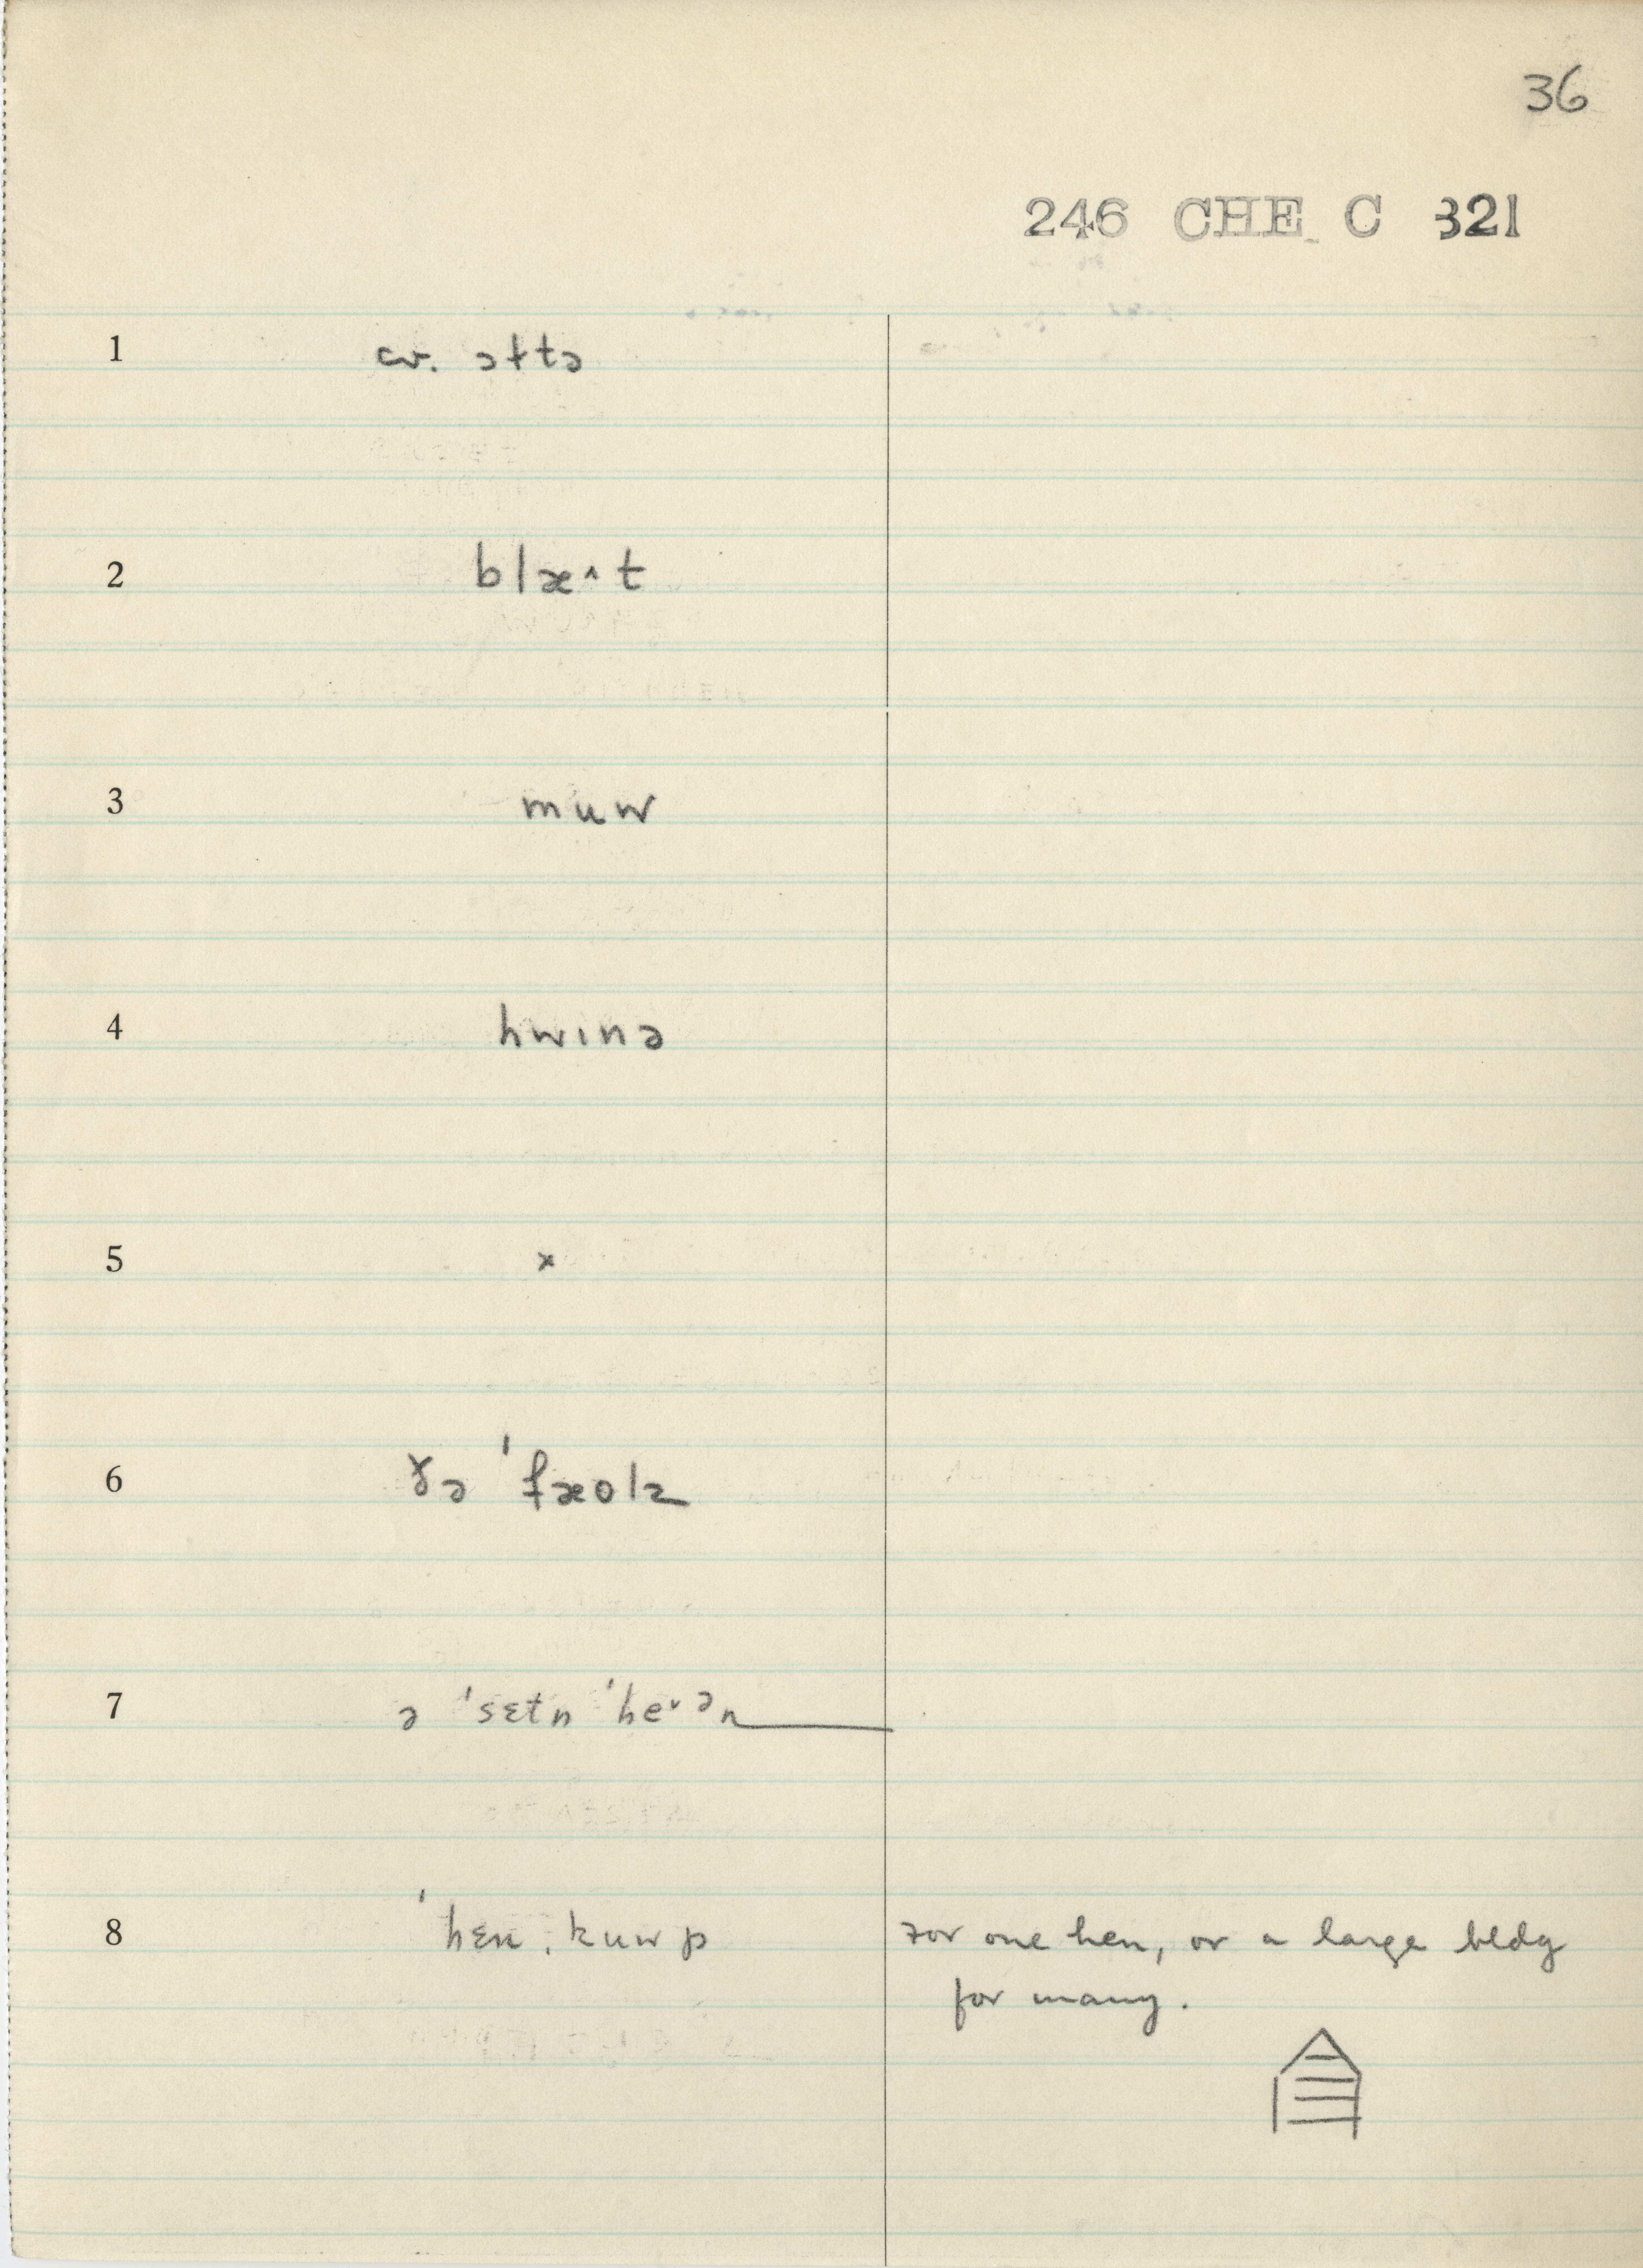 36
246 CHE C 321
1 cv. ɔttə
2 blæ^t
3 muw
4 hwɪnə
5 x
6 ðə 'fæolz
7 ə 'sɛtn 'heᵛᵊn
8 'hɛn ˌkuwp
For one hen, or a large bldg
for many.